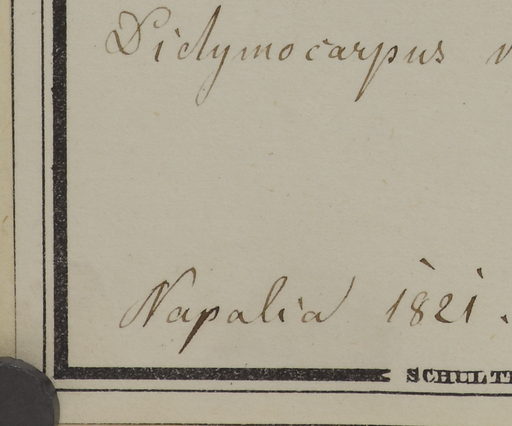 Didymocarpus
Napalia 1821.
SCHULT